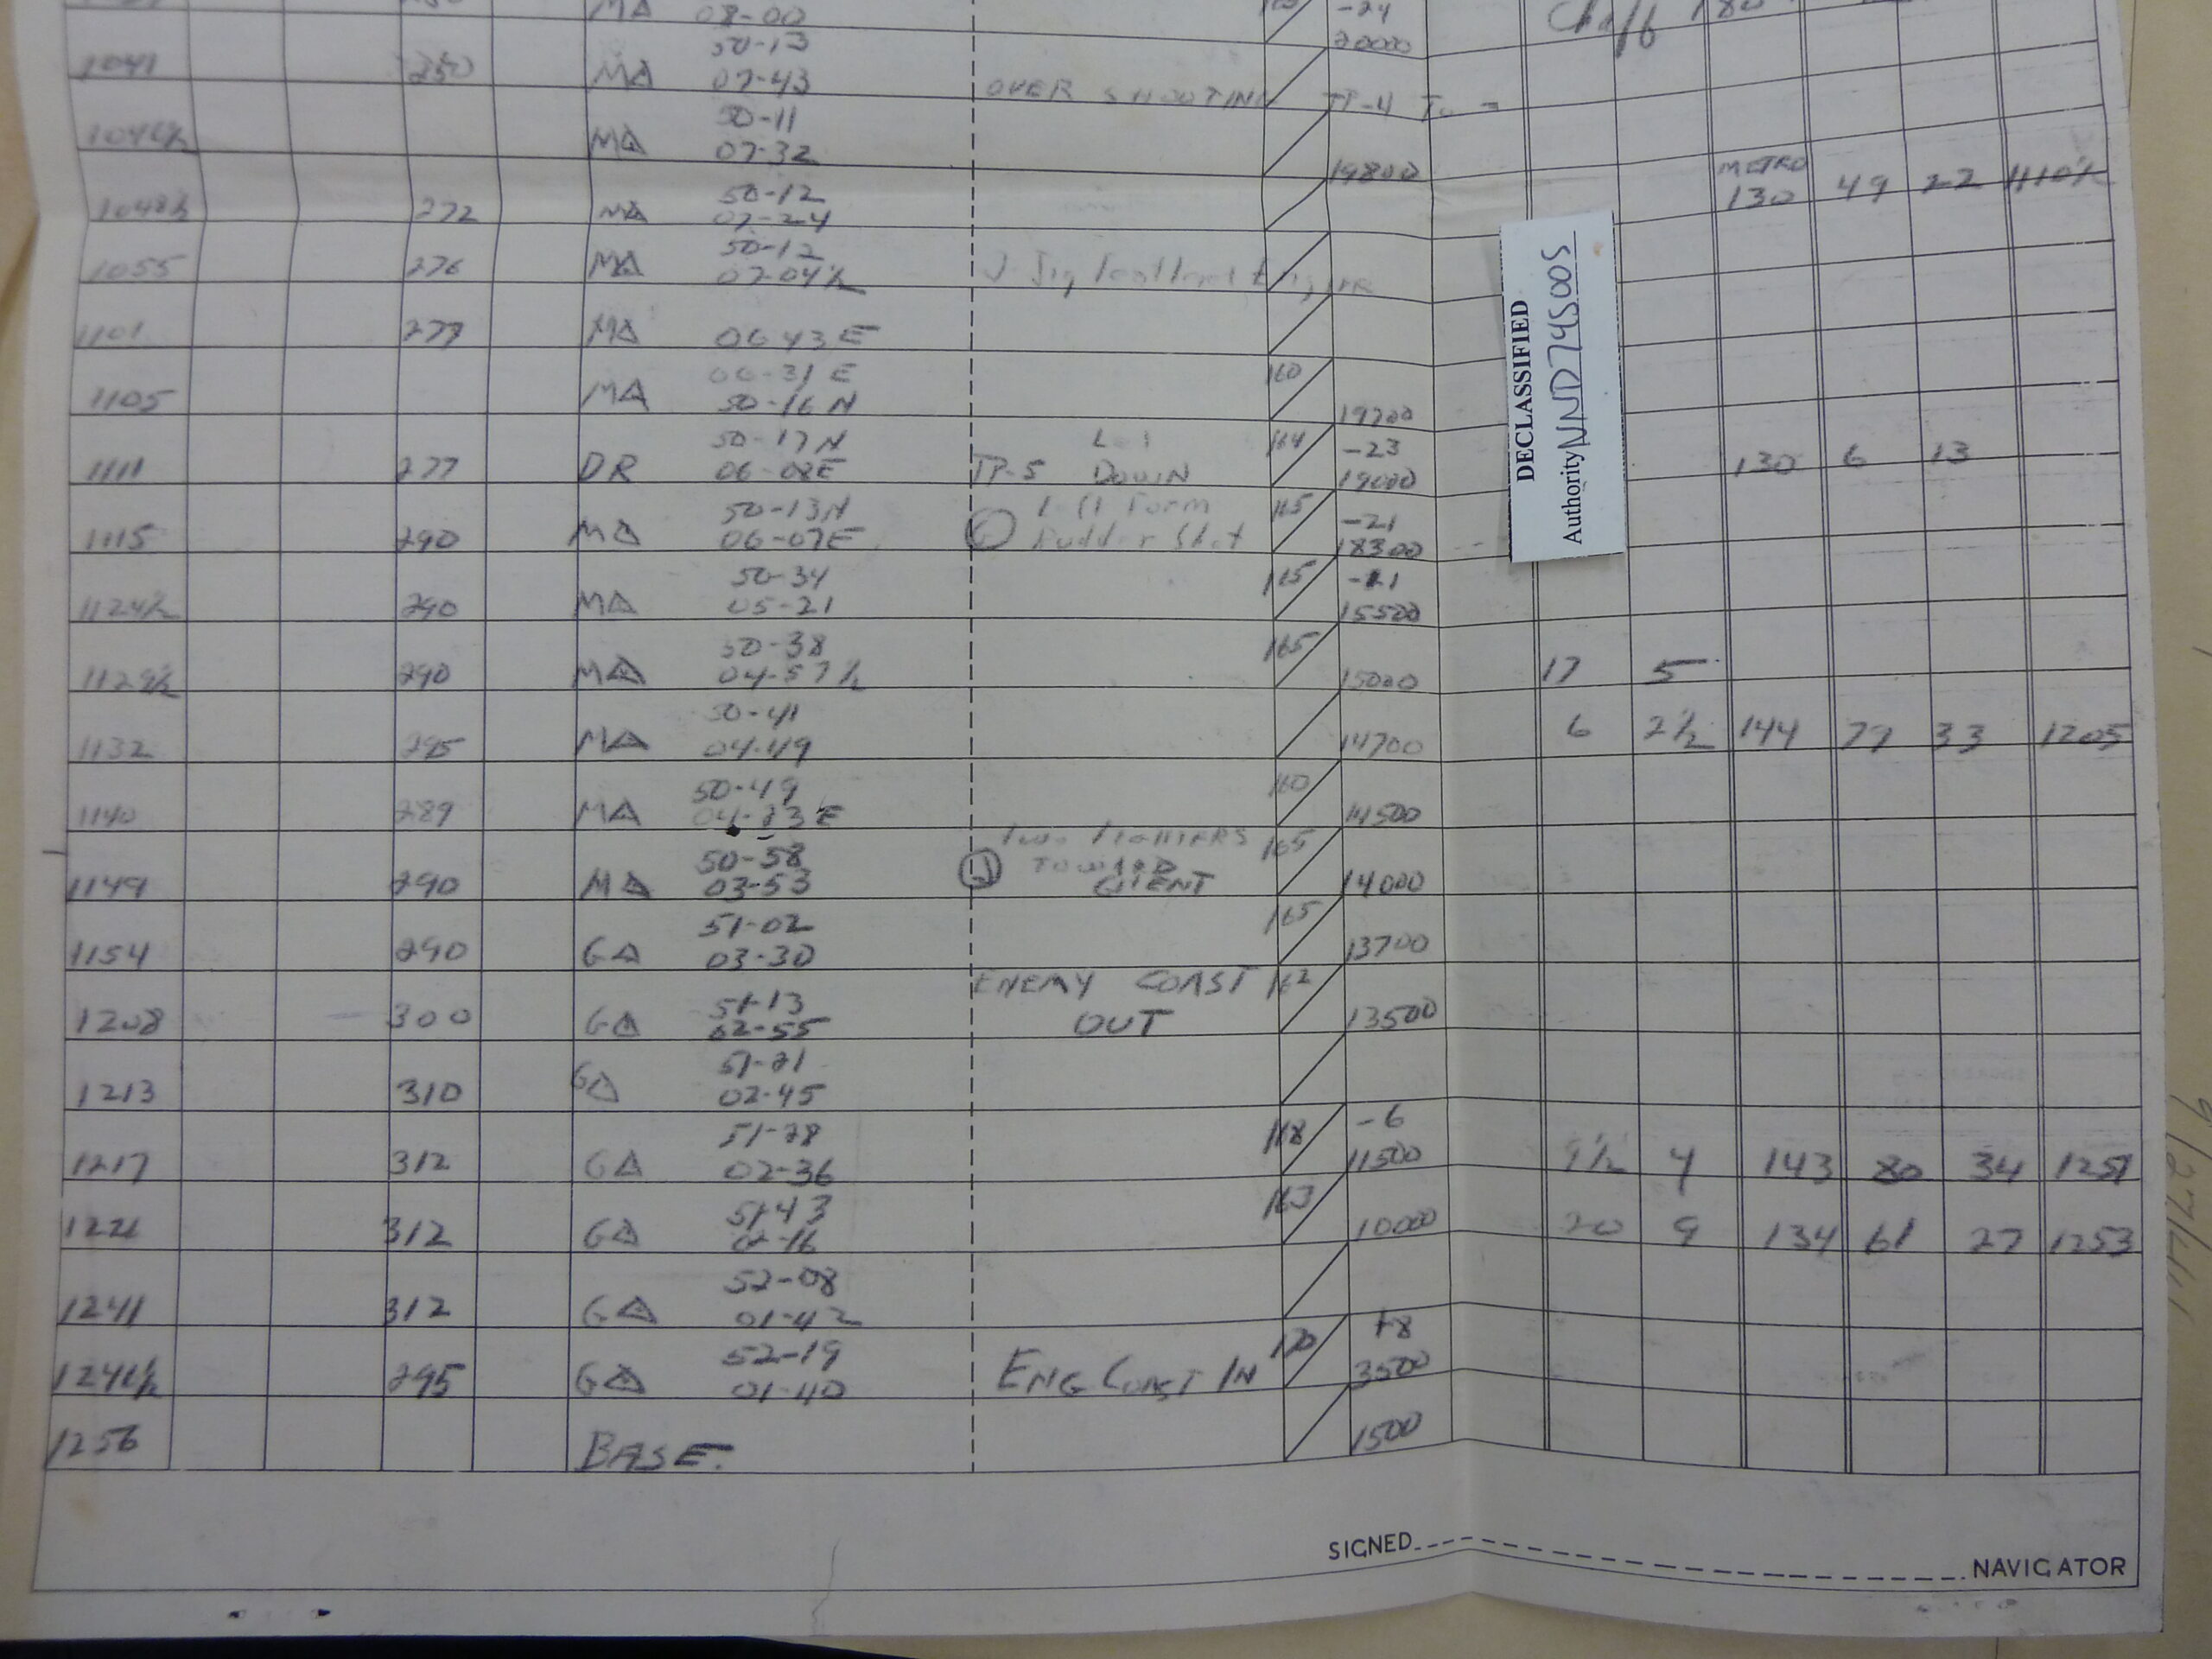 MA 08-00 -24 Chaff 180
50-13 20000
1041 250 MA 07-43 OVER SHOOTING TP-4
50-11
1046½ MA 07-32 19800 METRO
1048½ 272 MA 50-12 130 49 22 1110½
07-24
50-12
1055 276 MA 07-04½
1101 277 MA 06 43 E
06-31 E 160
1105 MA 50-16 N 19200
50-17 N 164 -23
1111 277 DR 06-08E TP-5 DOWN 19000 130 6 13
50-13N Form 165 -21
1115 290 MA 06-07E Rudder Shot 18300
50-34 165 -21
1124½ 290 MA 05-21 15500
50-38 165
1129½ 290 MA 04-57½ 15000 17 5
50-41
1132 295 MA 04-49 14700 6 2½ 144 79 33 1205
50-49 160
1140 289 MA 04-23 E 14500
50-58 TWO 165
TOWARD
1149 290 MA 03-53 GHENT 14000
51-02 165
1154 290 GA 03-30 13700
51-13 ENEMY COAST 162
1208 300 GA 02-55 OUT 13500
51-21
1213 310 GA 02-45
51-28 168 -6
1217 312 GA 02-36 11500 9½ 4 143 80 34 1251
51-43 163
312 GA 02-16 10000 20 9 134 61 27 1253
52-08
1241 312 GA 01-42
52-19 170 +8
1246½ 295 GA 01-40 ENG COAST IN 3500
1256 BASE. 1500
DECLASSIFIED
Authority NND745005
SIGNED NAVIGATOR